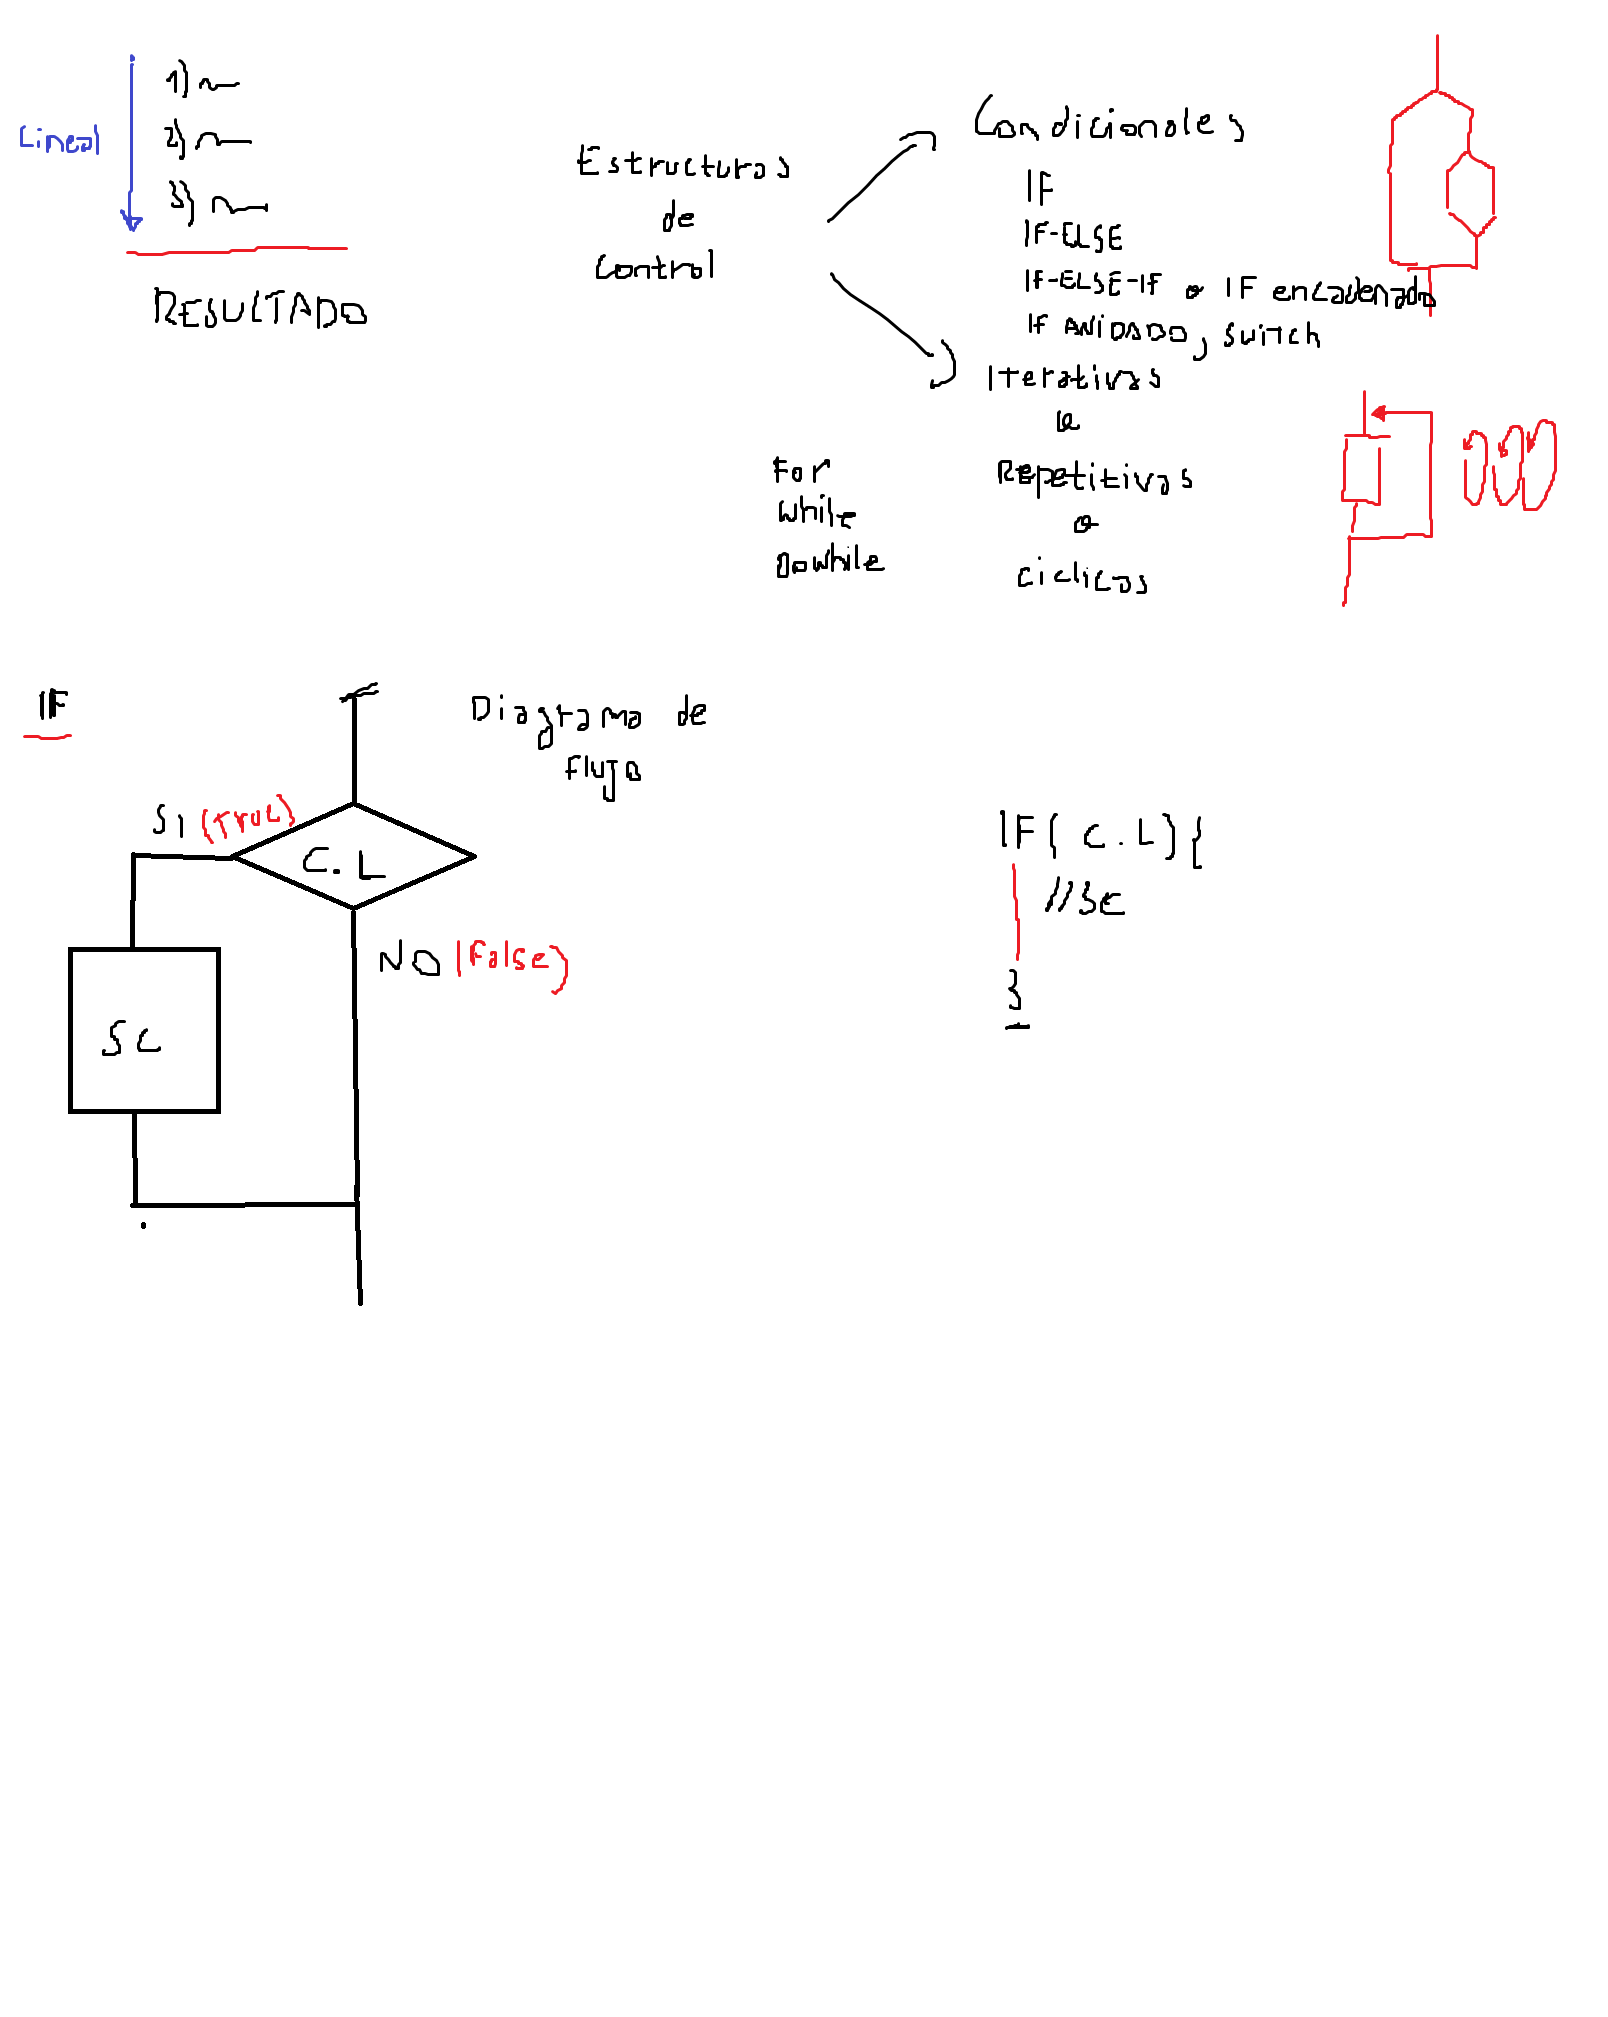 Lineal
1)
2)
3)
RESULTADO
Estructuras
de
Control
Condicionales
IF
IF-ELSE
IF-ELSE-IF o IF encadenado
IF ANIDADO, Switch
Iterativas
o
Repetitivas
o
ciclicas
For
While
Dowhile
IF
Diagrama de
flujo
SI (True)
C.L
NO (False)
SC
IF( C.L){
//SC
}